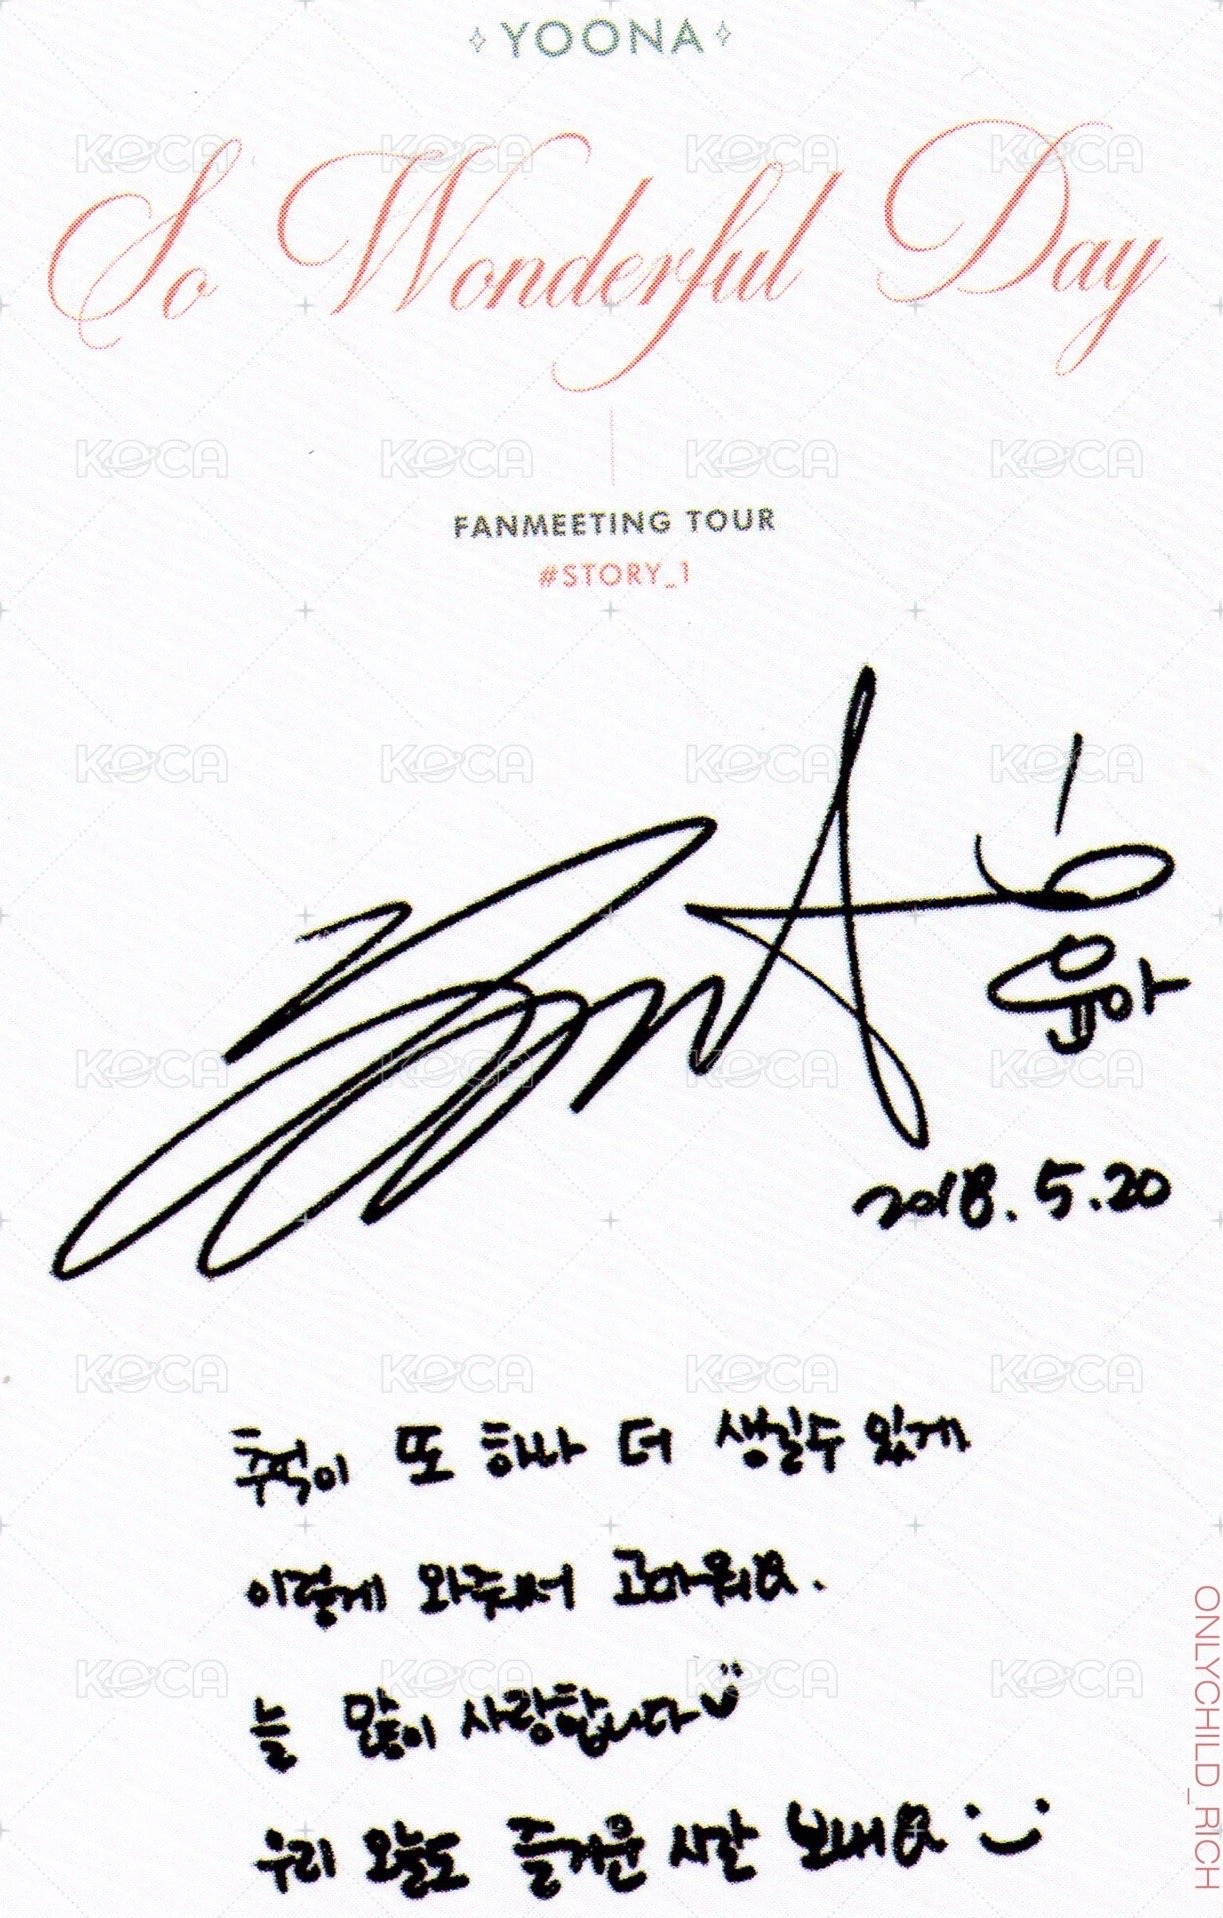 YOONA
So Wonderful Day
FANMEETING TOUR
#STORY_1
윤아
2018.5.20
추억이 또 하나 더 생길수 있게
이렇게 와주셔서 고마워요.
늘 많이 사랑합니다
우리 오늘도 즐거운 시간 보내요
ONLYCHILD_RICH
KOCA